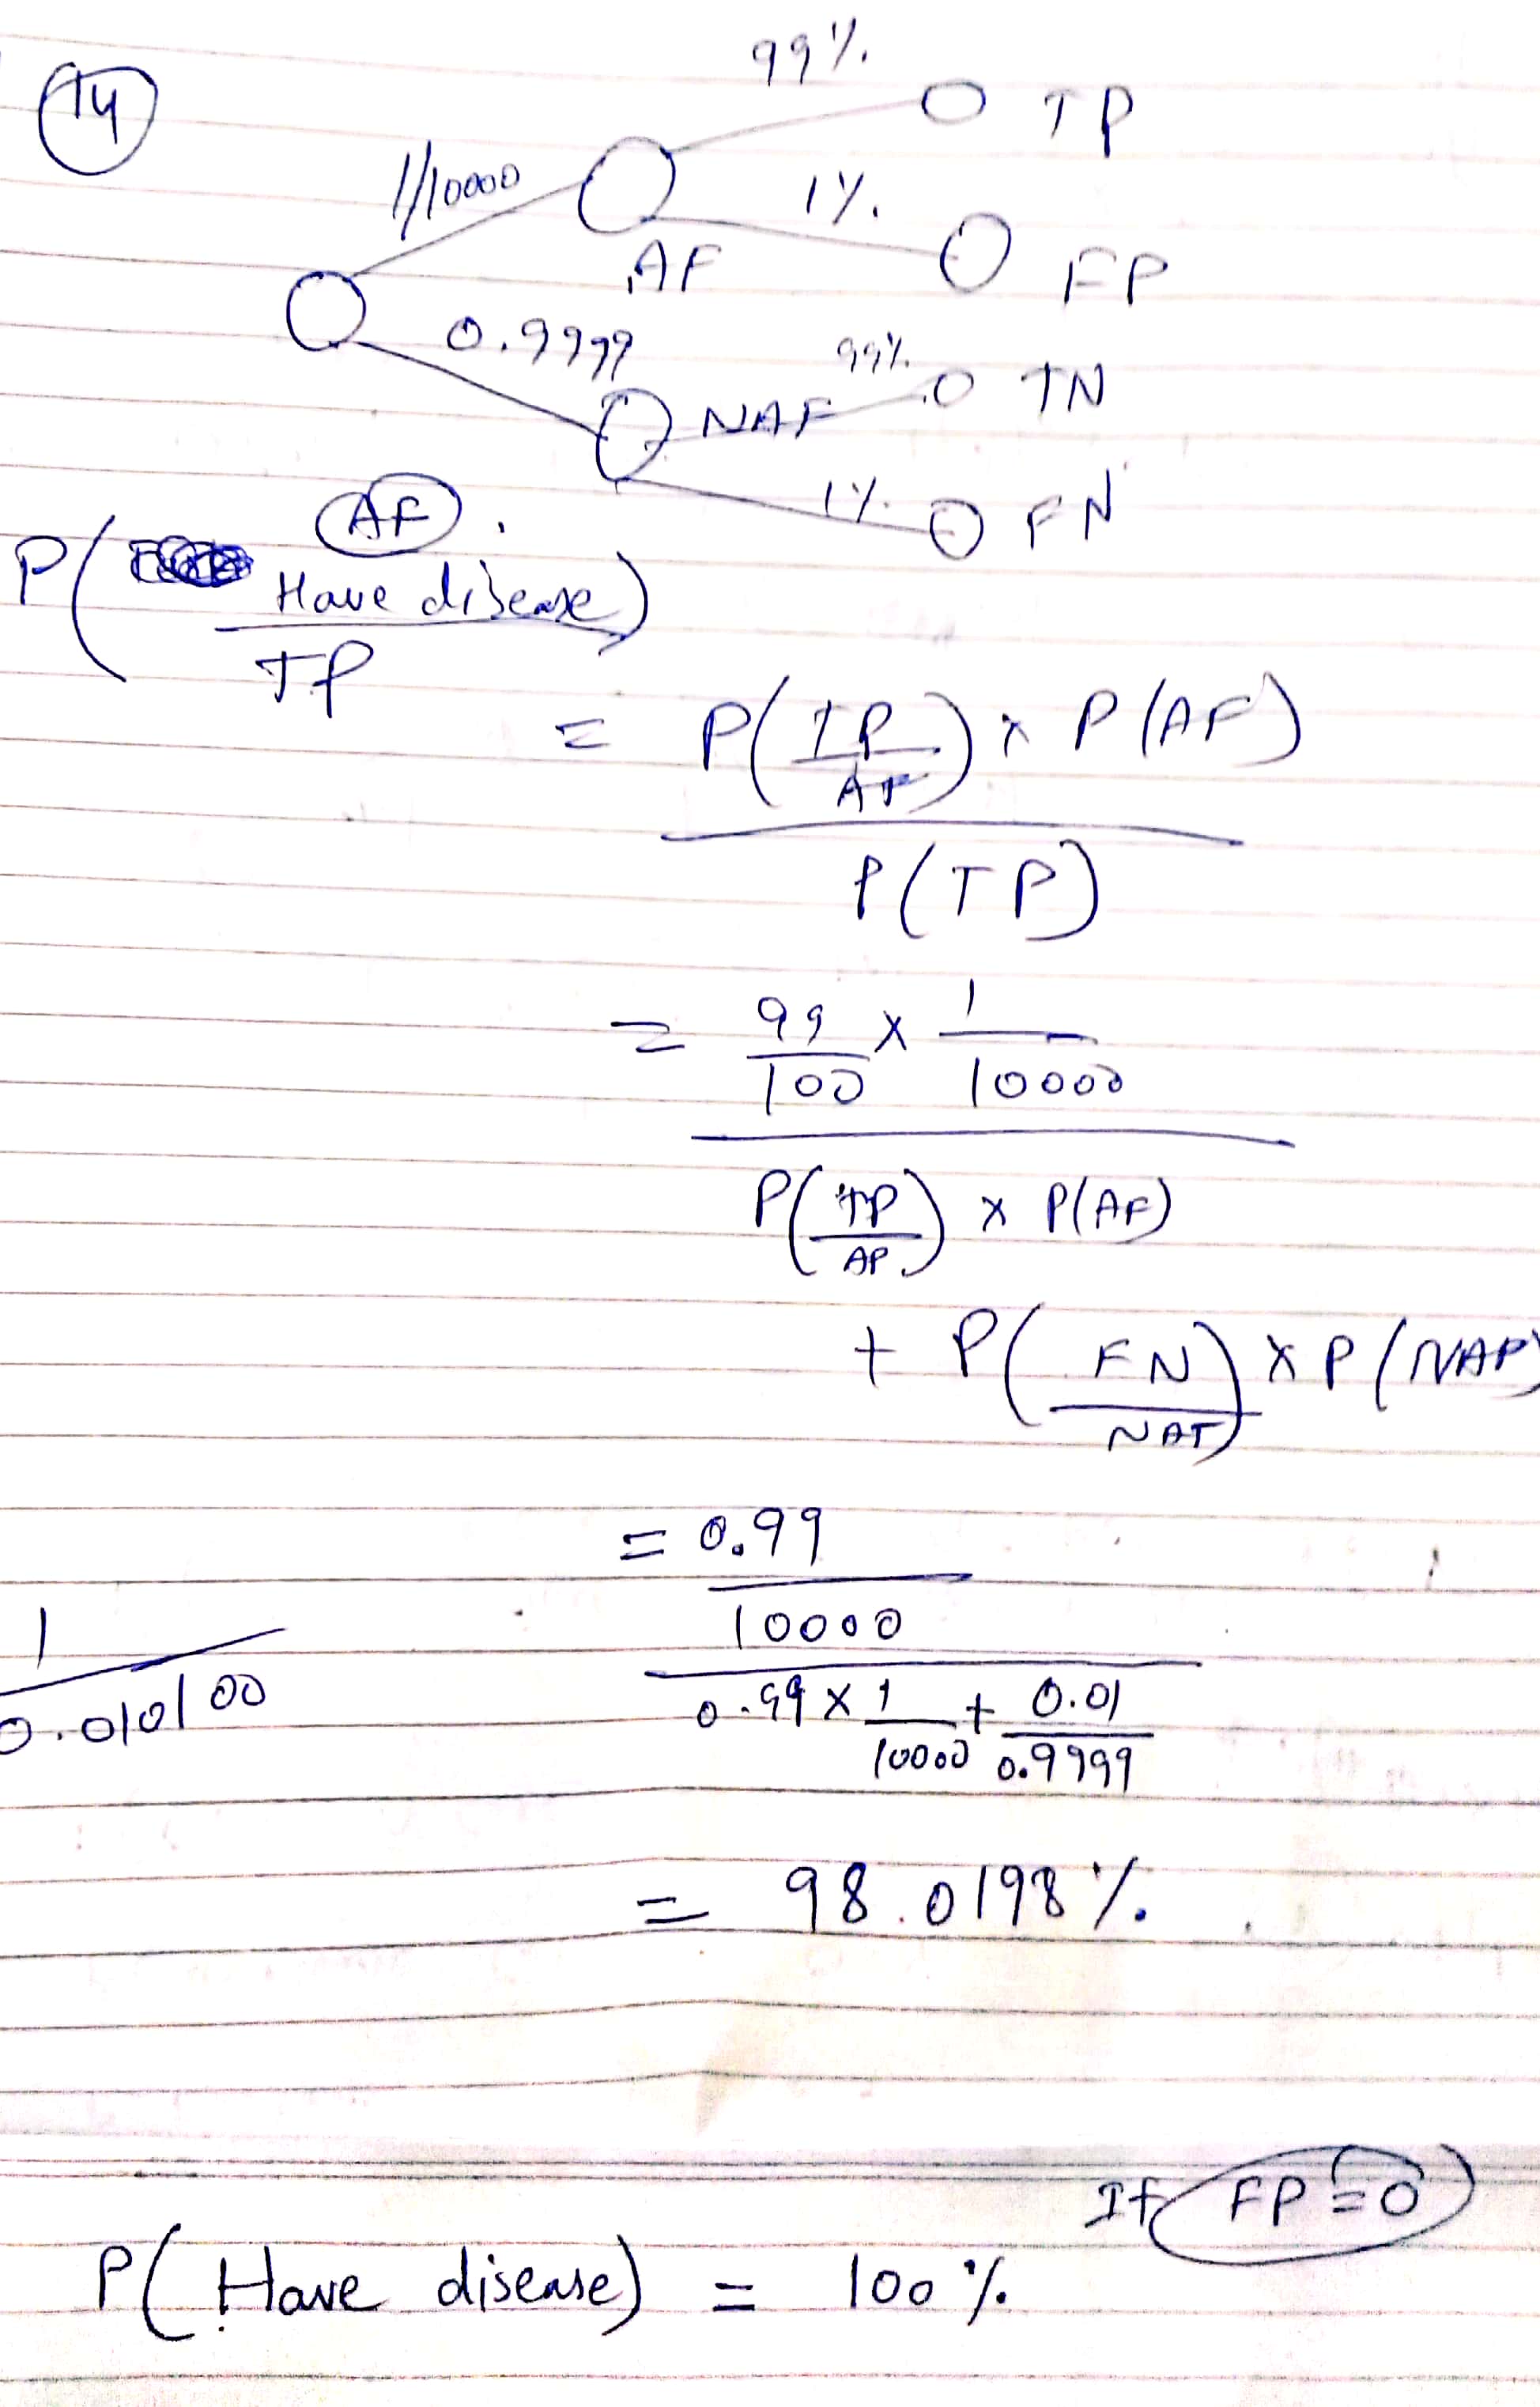 14
99%
TP
1/10000
1%.
AF
FP
0.9999
99%
TN
NAF
1%.
FN
AF.
P( Have disease)
TP
= P( TP ) x P(AF)
AF
P(TP)
= 99 x 1
100 10000
P( TP ) x P(AF)
AP
+ P( FN ) x P(NAP)
NAT
= 0.99
10000
1
0.010100
0.99 x 1 + 0.01
10000 0.9999
= 98.0198%.
If FP=0
P( Have disease) = 100%.